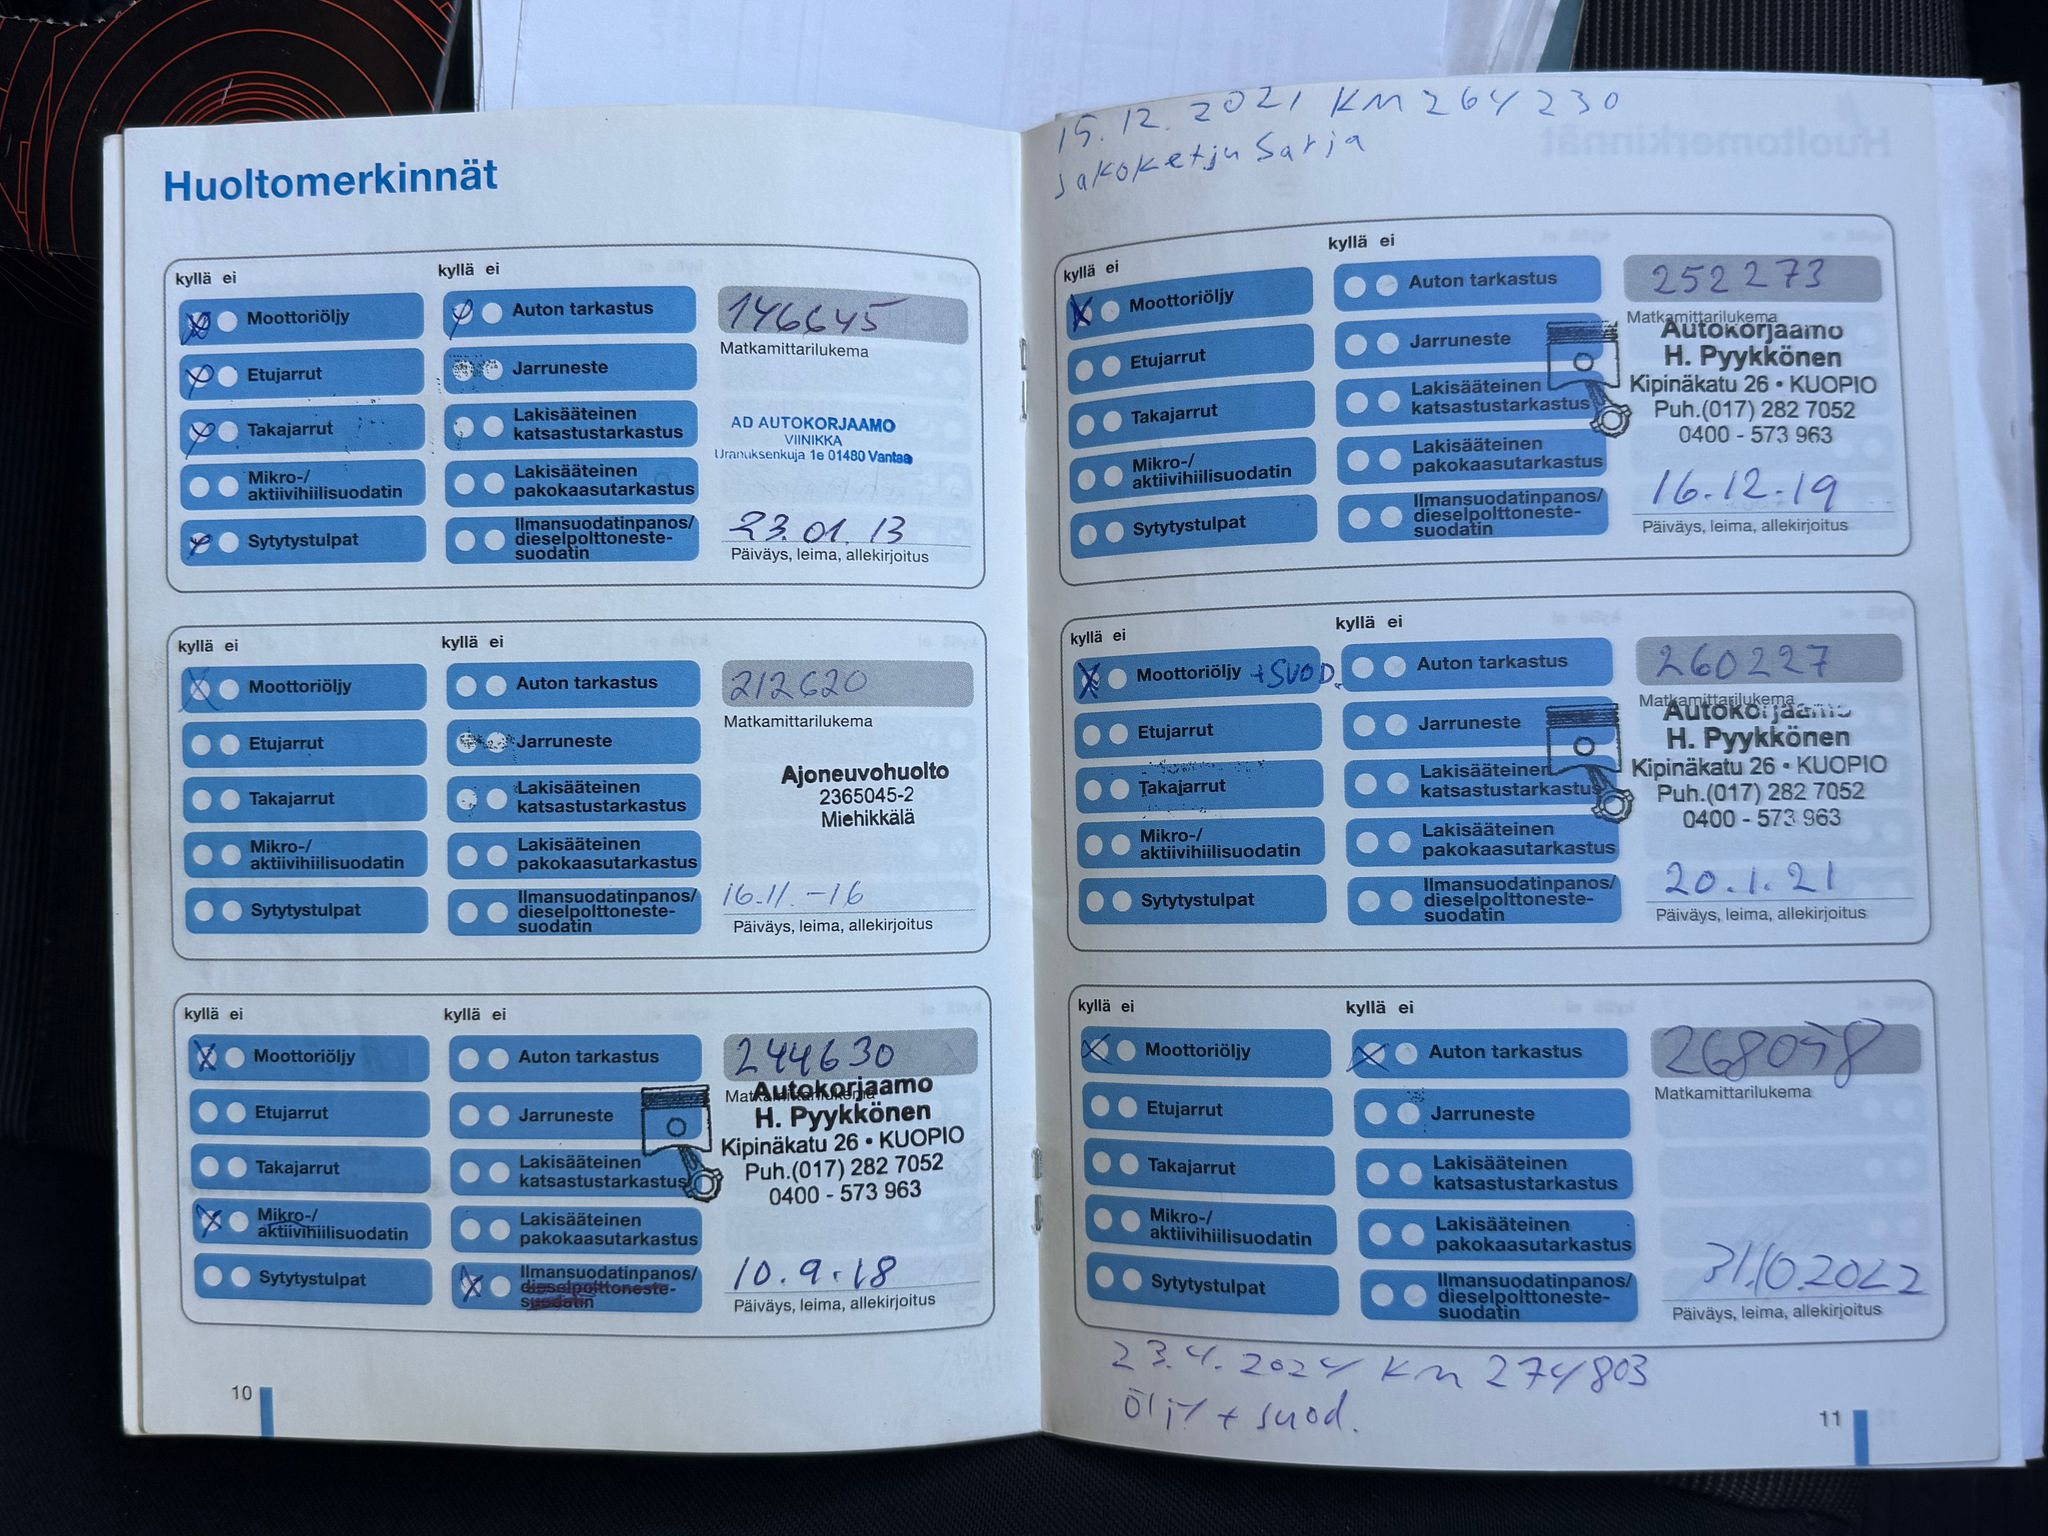 Huoltomerkinnät
kyllä ei
kyllä ei
Moottoriöljy
Etujarrut
Takajarrut
Mikro-/
aktiivihiilisuodatin
Sytytystulpat
Auton tarkastus
Jarruneste
Lakisääteinen
katsastustarkastus
Lakisääteinen
pakokaasutarkastus
Ilmansuodatinpanos/
dieselpolttoneste-
suodatin
146645
Matkamittarilukema
AD AUTOKORJAAMO
VIINIKKA
Uranuksenkuja 1e 01480 Vantaa
23.01.13
Päiväys, leima, allekirjoitus
kyllä ei
kyllä ei
Moottoriöljy
Etujarrut
Takajarrut
Mikro-/
aktiivihiilisuodatin
Sytytystulpat
Auton tarkastus
Jarruneste
Lakisääteinen
katsastustarkastus
Lakisääteinen
pakokaasutarkastus
Ilmansuodatinpanos/
dieselpolttoneste-
suodatin
212620
Matkamittarilukema
Ajoneuvohuolto
2365045-2
Miehikkälä
16.11.-16
Päiväys, leima, allekirjoitus
kyllä ei
kyllä ei
Moottoriöljy
Etujarrut
Takajarrut
Mikro-/
aktiivihiilisuodatin
Sytytystulpat
Auton tarkastus
Jarruneste
Lakisääteinen
katsastustarkastus
Lakisääteinen
pakokaasutarkastus
Ilmansuodatinpanos/
dieselpolttoneste-
suodatin
244630
Matkamittarilukema
Autokorjaamo
H. Pyykkönen
Kipinäkatu 26 • KUOPIO
Puh.(017) 282 7052
0400 - 573 963
10.9.18
Päiväys, leima, allekirjoitus
10
15.12.2021 KM 264230
Jakoketju Sarja
kyllä ei
kyllä ei
Moottoriöljy
Etujarrut
Takajarrut
Mikro-/
aktiivihiilisuodatin
Sytytystulpat
Auton tarkastus
Jarruneste
Lakisääteinen
katsastustarkastus
Lakisääteinen
pakokaasutarkastus
Ilmansuodatinpanos/
dieselpolttoneste-
suodatin
252273
Matkamittarilukema
Autokorjaamo
H. Pyykkönen
Kipinäkatu 26 • KUOPIO
Puh.(017) 282 7052
0400 - 573 963
16.12.19
Päiväys, leima, allekirjoitus
kyllä ei
kyllä ei
Moottoriöljy +SUOD.
Etujarrut
Takajarrut
Mikro-/
aktiivihiilisuodatin
Sytytystulpat
Auton tarkastus
Jarruneste
Lakisääteinen
katsastustarkastus
Lakisääteinen
pakokaasutarkastus
Ilmansuodatinpanos/
dieselpolttoneste-
suodatin
260227
Matkamittarilukema
Autokorjaamo
H. Pyykkönen
Kipinäkatu 26 • KUOPIO
Puh.(017) 282 7052
0400 - 573 963
20.1.21
Päiväys, leima, allekirjoitus
kyllä ei
kyllä ei
Moottoriöljy
Etujarrut
Takajarrut
Mikro-/
aktiivihiilisuodatin
Sytytystulpat
Auton tarkastus
Jarruneste
Lakisääteinen
katsastustarkastus
Lakisääteinen
pakokaasutarkastus
Ilmansuodatinpanos/
dieselpolttoneste-
suodatin
Matkamittarilukema
31.10.2022
Päiväys, leima, allekirjoitus
23.4.2024 KM 274803
Öljy + suod.
11